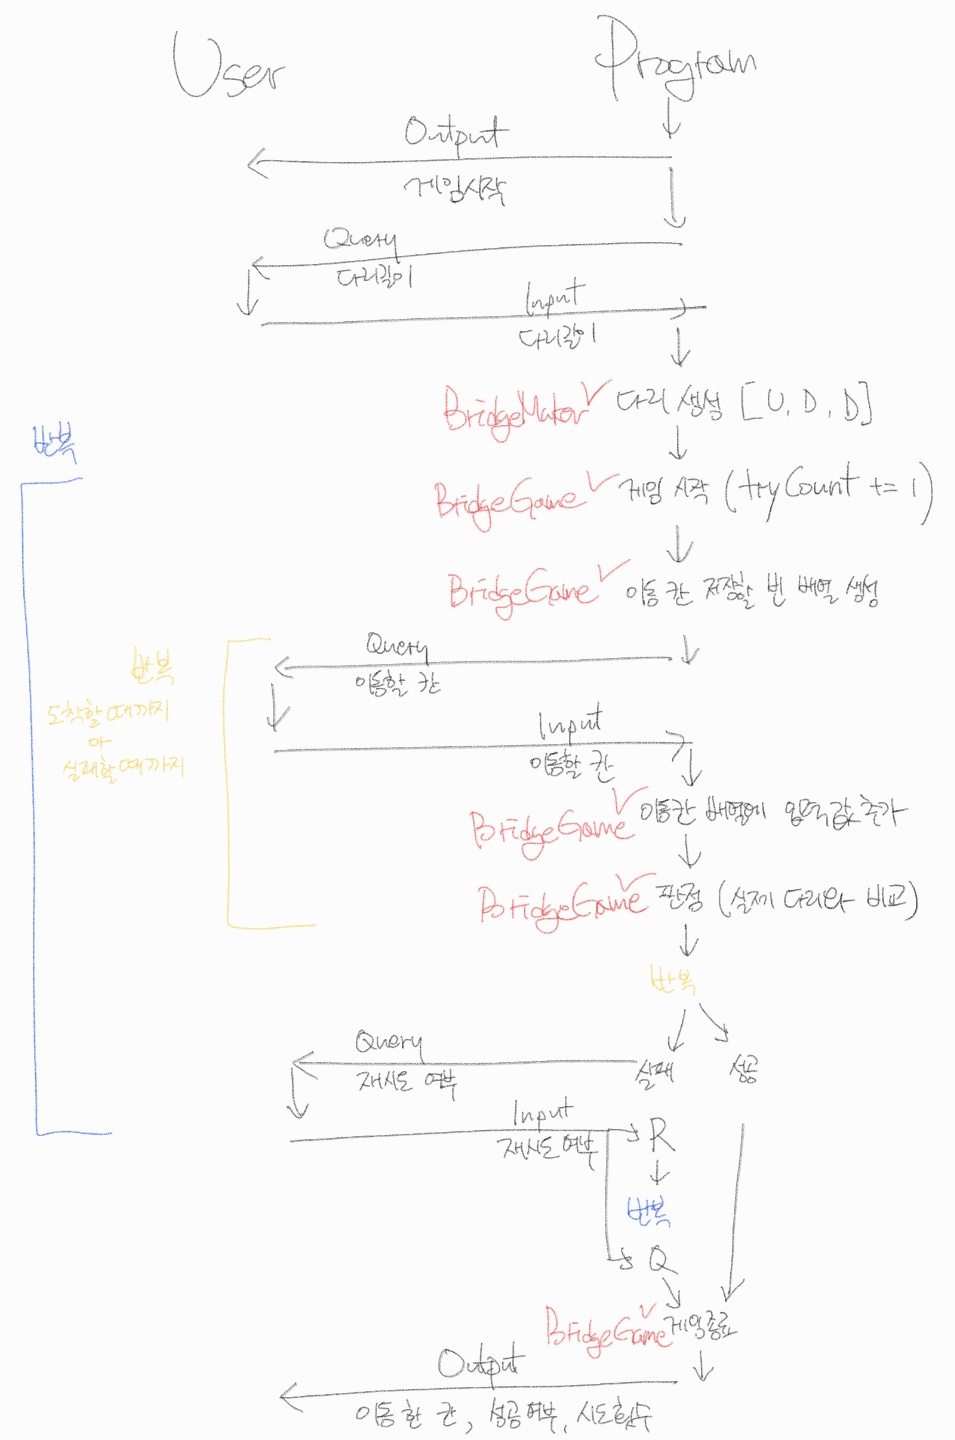 User
Program
Output
게임시작
Query
다리길이
Input
다리길이
BridgeMaker 다리 생성 [U, D, D]
반복
BridgeGame 게임 시작 (tryCount += 1)
BridgeGame 이동 칸 저장할 빈 배열 생성
Query
이동할 칸
반복
도착할 때까지
or
실패할 때까지
Input
이동할 칸
BridgeGame 이동칸 배열에 입력값 추가
BridgeGame 판정 (실제 다리와 비교)
반복
Query
재시도 여부
실패
성공
Input
재시도 여부
R
반복
Q
BridgeGame 게임종료
Output
이동한 칸, 성공여부, 시도횟수